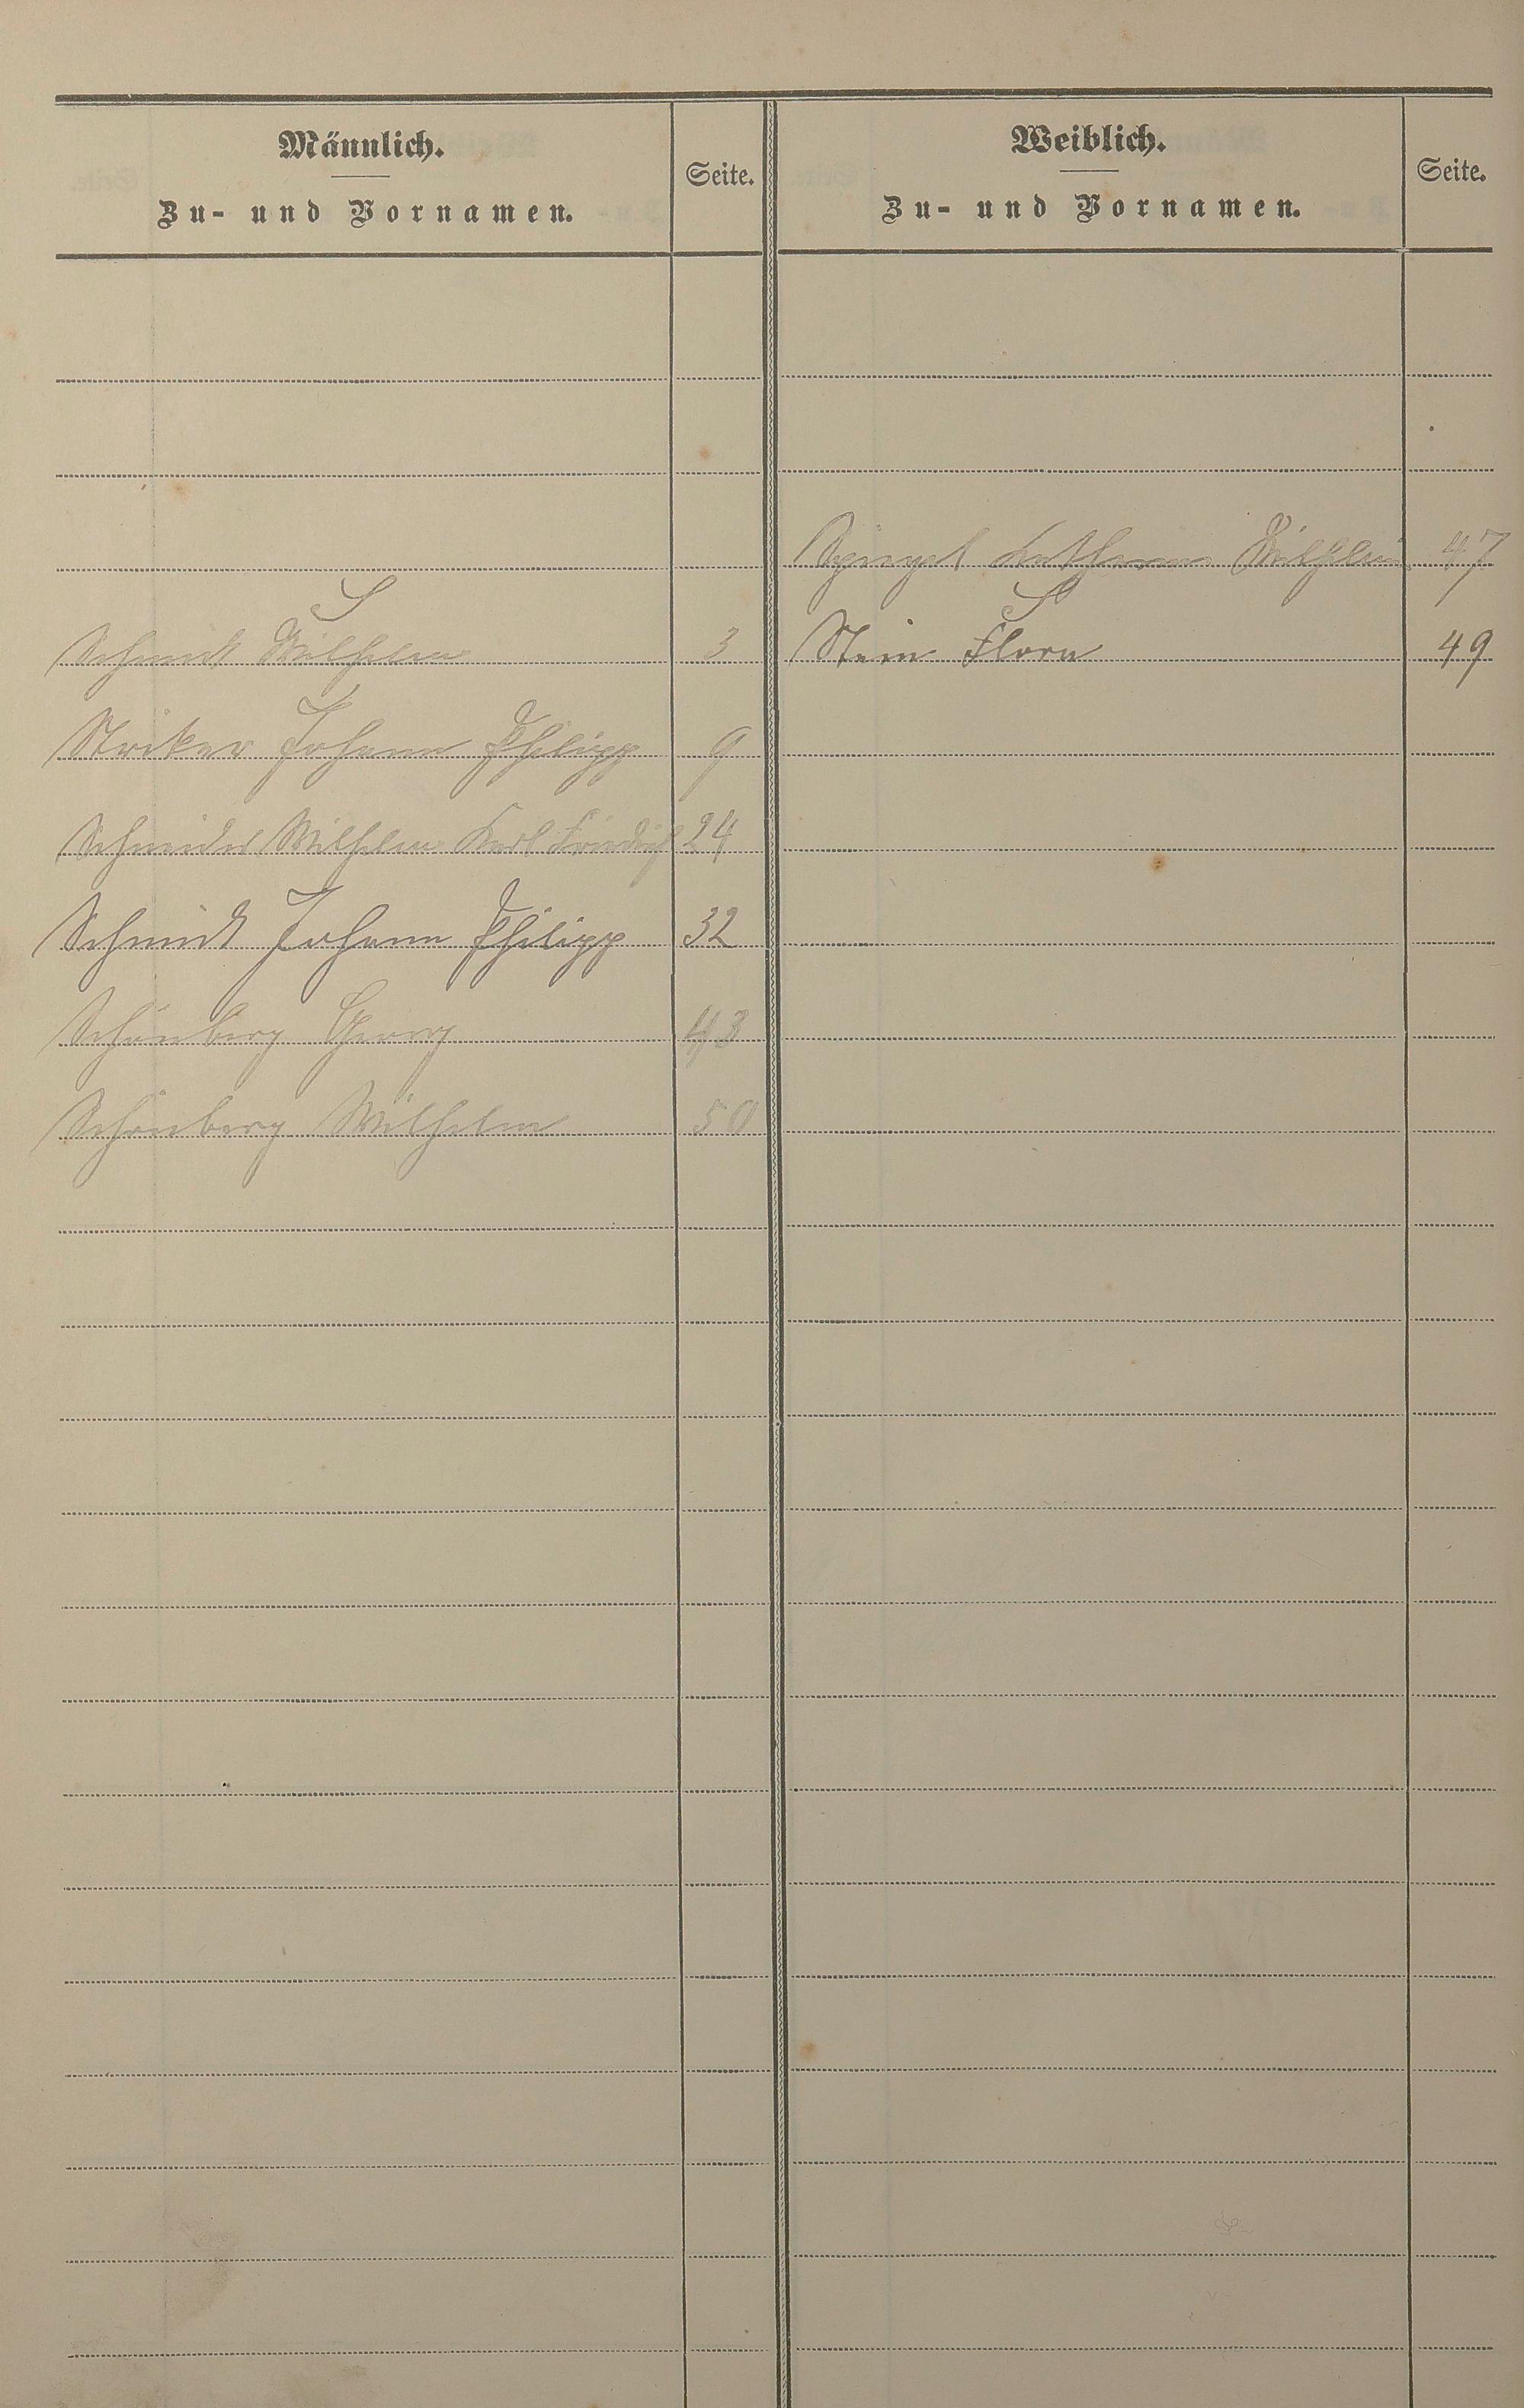 Männlich.
Zu- und Vornamen.
Seite.
S
Schmidt Wilhelm 3
Striker Johann Philipp 9
Schneider Wilhelm Karl Friedrich 24
Schmidt Johann Philipp 32
Schönberg Georg 43
Schönberg Wilhelm 50
Weiblich.
Zu- und Vornamen.
Seite.
Spengel Katharina 47
S
Stein Flora 49